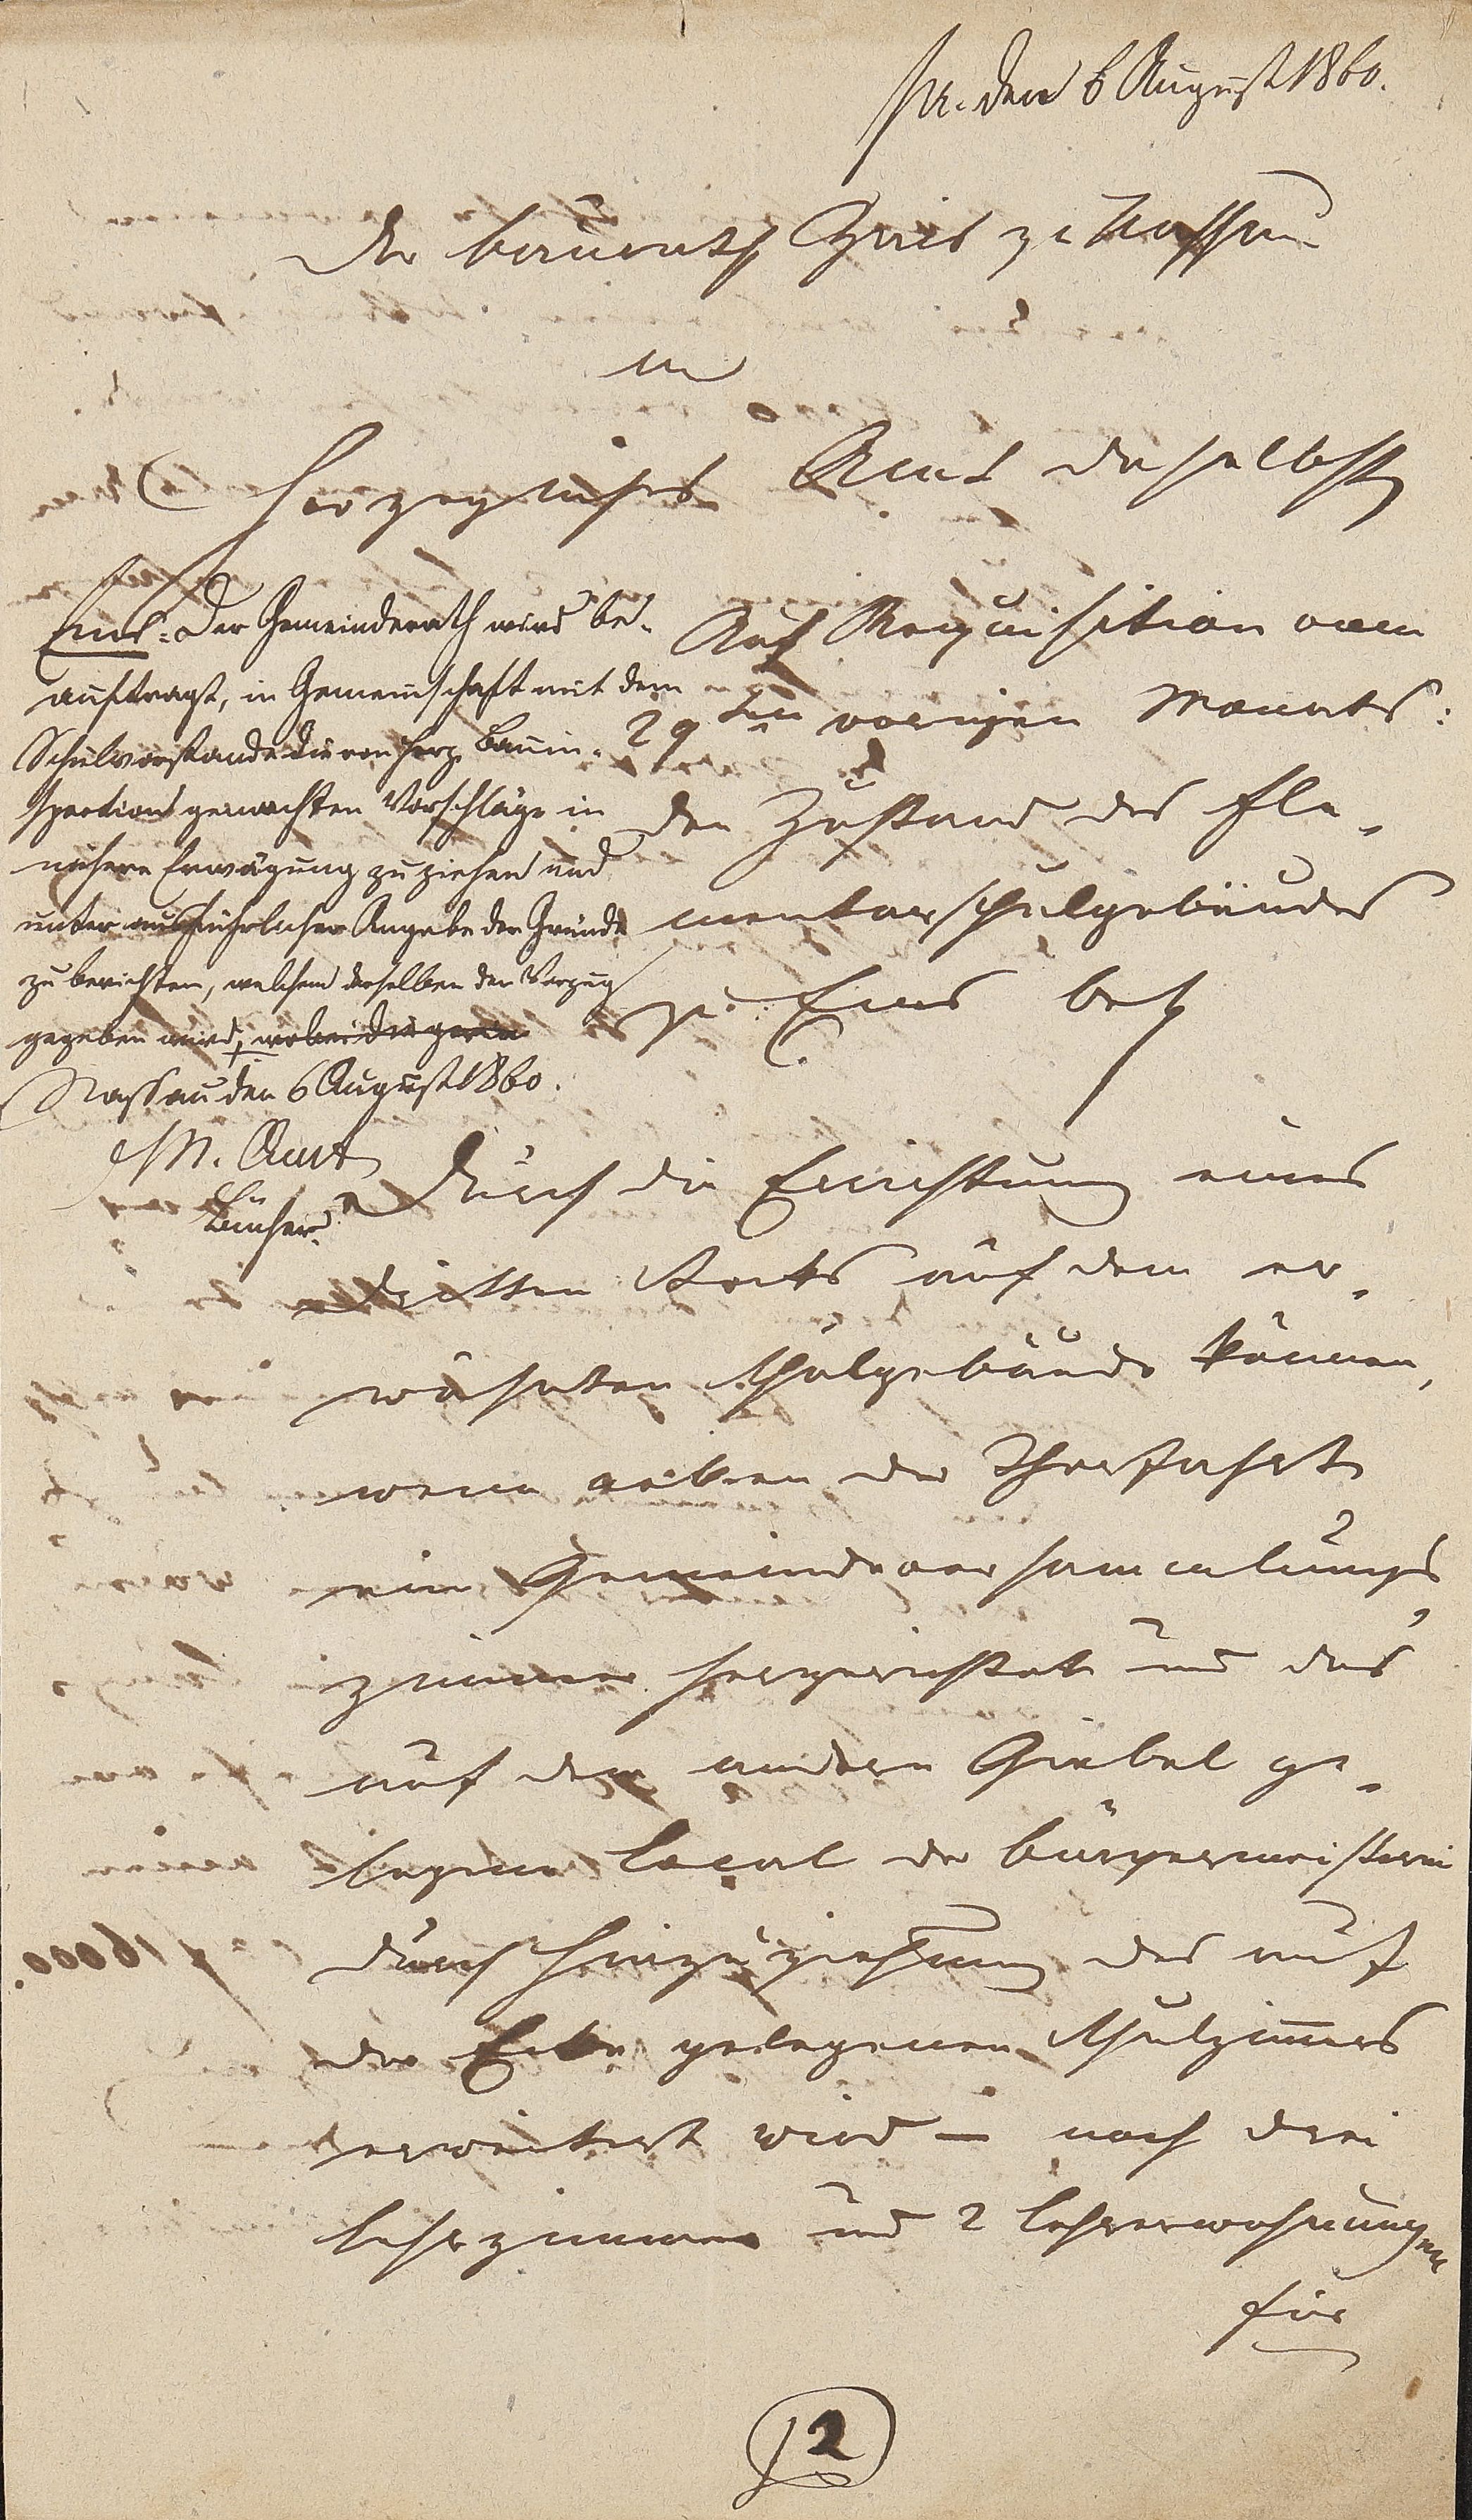 pr. den 6 August 1860.
Der Baurath Goetz zu Nassau
an
Herzogliches Amt daselbst
Ems. Der Gemeinderath wird be-
auftragt, in Gemeinschaft mit dem
Schulvorstande die von Herz. Bauin-
spection gemachten Vorschläge in
nähere Erwägung zu ziehen und
unter ausführlicher Angabe der Gründe
zu berichten, welchem derselben der Vorzug
gegeben wird, wobei die
Nassau den 6 August 1860.
H. N. Amt
Auf Requisition vom
29ten vorigen Monats:
den Zustand des Ele-
mentarschulgebäudes
zu Ems betr.
Durch die Errichtung eines
dritten Stocks auf dem er-
wähnten Schulgebäude können,
wenn neben der Thorfahrt
ein Gemeindeversammlungs-
zimmer hergerichtet und das
auf dem andern Giebel ge-
legene Local der Bürgermeisterei
durch Hinzuziehung des auf
der Ecke gelegenen Schulzimmers
erweitert wird – noch drei
Lehrzimmer und 2 Lehrerwohnungen
für
2